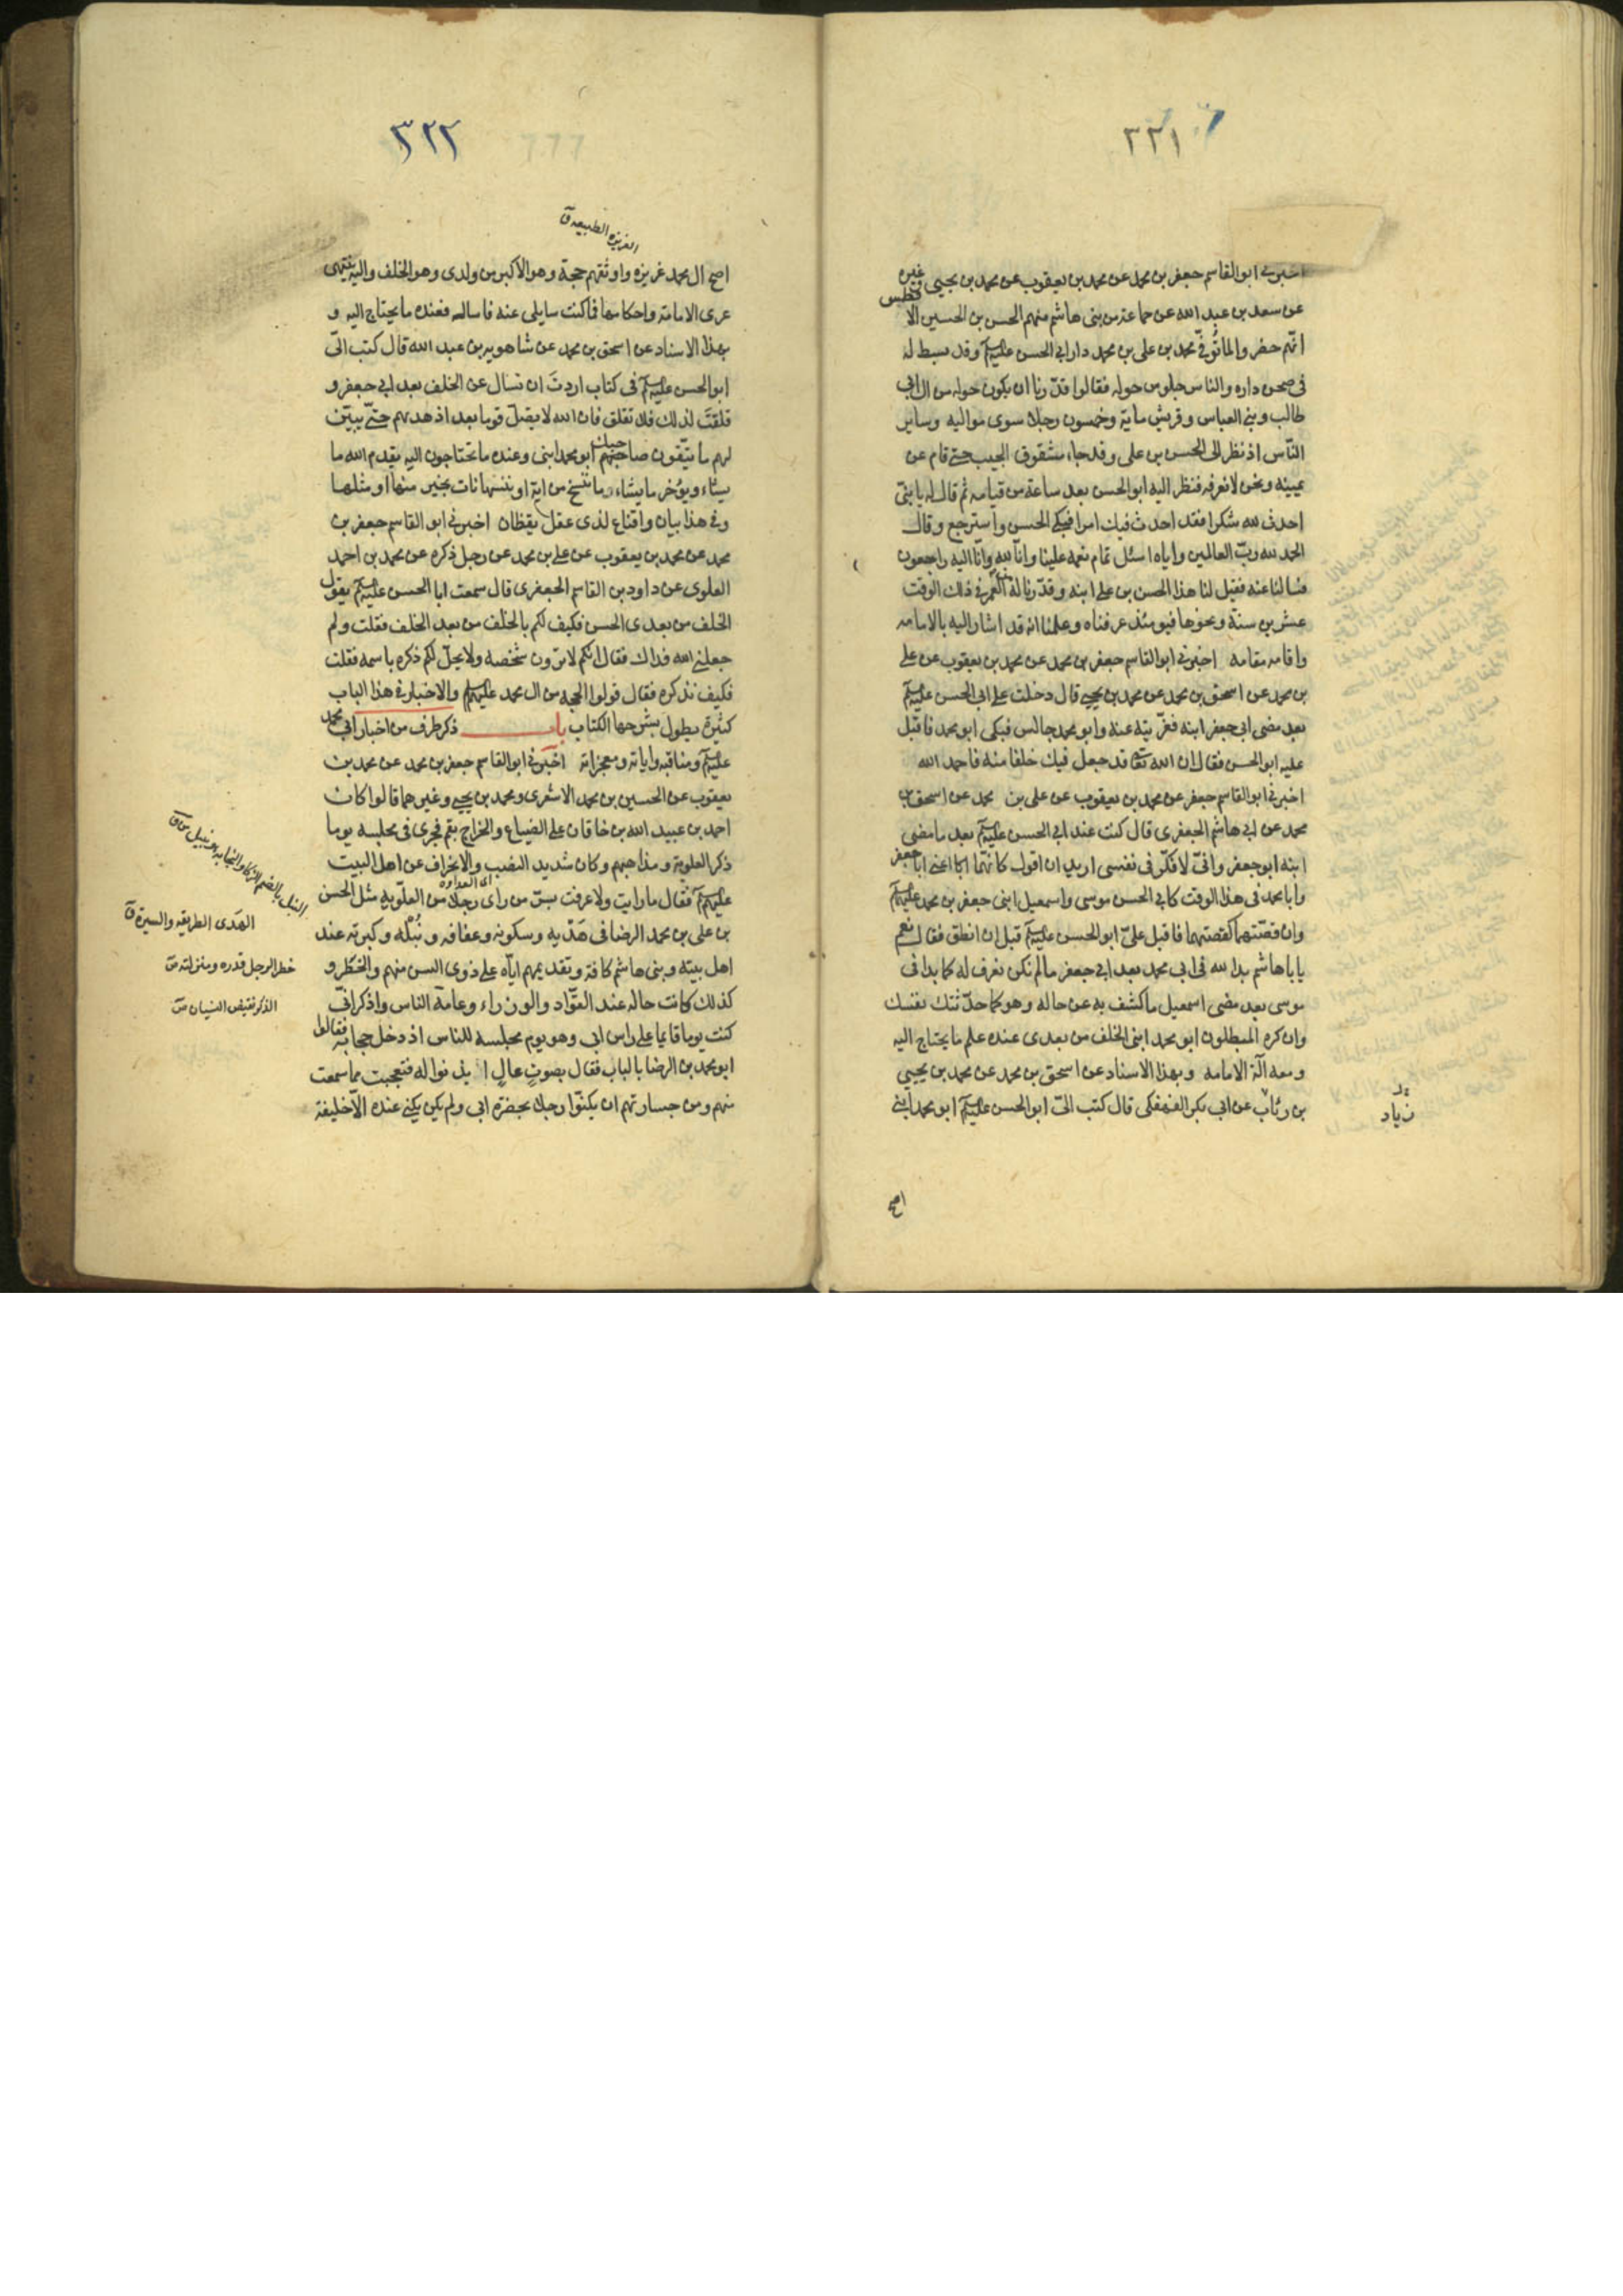 ٣٢١
اخبرني ابو القاسم جعفر بن محمد عن محمد بن يعقوب عن محمد بن يحيى وغيره
عن سعد بن عبد الله عن جماعة من بني هاشم منهم الحسن بن الحسين الافطس
انهم حضروا لما توفي محمد بن علي بن محمد دار ابي الحسن عليه السلم وقد بسط له
في صحن داره والناس جلوس حوله فقالوا قدرنا ان يكون حوله من ال ابي
طالب وبني العباس وقريش ماية وخمسون رجلا سوى مواليه وساير
الناس اذ نظر الى الحسن بن علي وقد جاء مشقوق الجيب حتى قام عن
يمينه ونحن لا نعرفه فنظر اليه ابو الحسن بعد ساعة من قيامه ثم قال له يا بني
احدث لله شكرا فقد احدث فيك امرا فبكى الحسن واسترجع وقال
الحمد لله رب العالمين واياه اسئل تمام نعمه علينا وانا لله وانا اليه راجعون
فسالنا عنه فقيل لنا هذا الحسن بن علي ابنه وقدرنا له العمر في ذلك الوقت
عشرين سنة ونحوها فيومئذ عرفناه وعلمنا انه قد اشار اليه بالامامه
واقامه مقامه اخبرني ابو القاسم جعفر بن محمد عن محمد بن يعقوب عن علي
بن محمد عن اسحق بن محمد عن محمد بن يحيى قال دخلت على ابي الحسن عليه السلم
بعد مضى ابي جعفر ابنه فعزيته عنه وابو محمد جالس فبكى ابو محمد فاقبل
عليه ابو الحسن فقال ان الله تعالى قد جعل فيك خلفا منه فاحمد الله
اخبرني ابو القاسم جعفر عن محمد بن يعقوب عن علي بن محمد عن اسحق بن
محمد عن ابي هاشم الجعفري قال كنت عند ابي الحسن عليه السلم بعد ما مضى
ابنه ابو جعفر واني لافكر في نفسي اريد ان اقول كانهما اعني ابا جعفر
وابا محمد في هذا الوقت كابي الحسن موسى واسمعيل ابني جعفر بن محمد عليهم السلم
وان قصتهما كقصتهما فاقبل علي ابو الحسن عليه السلم قبل ان انطق فقال نعم
يا باهاشم بدا لله في ابي محمد بعد ابي جعفر ما لم تكن تعرف له كما بدا في
موسى بعد مضى اسمعيل ما كشف به عن حاله وهو كما حدثتك نفسك
وان كره المبطلون ابو محمد ابني الخلف من بعدي عنده علم ما يحتاج اليه
ومعه الة الامامه وبهذا الاسناد عن اسحق بن محمد عن محمد بن يحيى
بن رئاب عن ابي بكر الفهفكي قال كتب الي ابو الحسن عليه السلم ابو محمد ابني
زياد
اصح
٣٢٢
الغريزه الطبيعه ق
اصح ال محمد غريزه واوثقهم حجة وهو الاكبر من ولدي وهو الخلف واليه ينتهي
عرى الامامة واحكامها فما كنت سايلي عنه فاساله فعنده ما يحتاج اليه و
بهذا الاسناد عن اسحق بن محمد عن شاهويه بن عبد الله قال كتب الي
ابو الحسن عليه السلم في كتاب اردت ان تسال عن الخلف بعد ابي جعفر و
قلقت لذلك فلا تقلق فان الله لا يضل قوما بعد اذ هديهم حتى يبين
لهم ما يتقون صاحبهم ابو محمد ابني وعنده ما تحتاجون اليه يقدم الله ما
يشاء ويؤخر ما يشاء ما ننسخ من اية او ننسها نات بخير منها او مثلها
وفي هذا بيان واقناع لذي عقل يقظان اخبرني ابو القاسم جعفر بن
محمد عن محمد بن يعقوب عن علي بن محمد عن رجل ذكره عن محمد بن احمد
العلوي عن داود بن القاسم الجعفري قال سمعت ابا الحسن عليه السلم يقول
الخلف من بعدي الحسن فكيف لكم بالخلف من بعد الخلف فقلت ولم
جعلني الله فداك فقال انكم لا ترون شخصه ولا يحل لكم ذكره باسمه فقلت
فكيف نذكره فقال قولوا الحجه من ال محمد عليهم السلم والاخبار في هذا الباب
كثيرة يطول بشرحها الكتاب باب ذكر طرف من اخبار ابي محمد
عليه السلم ومناقبه واياته ومعجزاته اخبرني ابو القاسم جعفر بن محمد عن محمد بن
يعقوب عن الحسين بن محمد الاشعري ومحمد بن يحيى وغيرهما قالوا كان
احمد بن عبيد الله بن خاقان على الضياع والخراج بقم فجرى في مجلسه يوما
ذكر العلوية ومذاهبهم وكان شديد النصب والانحراف عن اهل البيت
اي العداوه
عليهم السلم فقال ما رايت ولا عرفت بسر من راى رجلا من العلويه مثل الحسن
بن علي بن محمد الرضا في هديه وسكونه وعفافه ونبله وكبرته عند
اهل بيته وبني هاشم كافة وتقديمهم اياه على ذوي السن منهم والخطر و
كذلك كانت حاله عند القواد والوزراء وعامة الناس واذكر اني
كنت يوما قايما على راس ابي وهو يوم مجلسه للناس اذ دخل حجابه فقالوا
ابو محمد بن الرضا بالباب فقال بصوت عال ايذنوا له فتعجبت مما سمعت
منهم ومن جسارتهم ان يكنوا رجلا بحضرة ابي ولم يكن يكنى عنده الا خليفة
النبل بالضم الذكاء والنجابه
الهدى الطريقه والسيرة ق
خطر الرجل قدره ومنزلته ص
الذكر نقيض النسيان ص